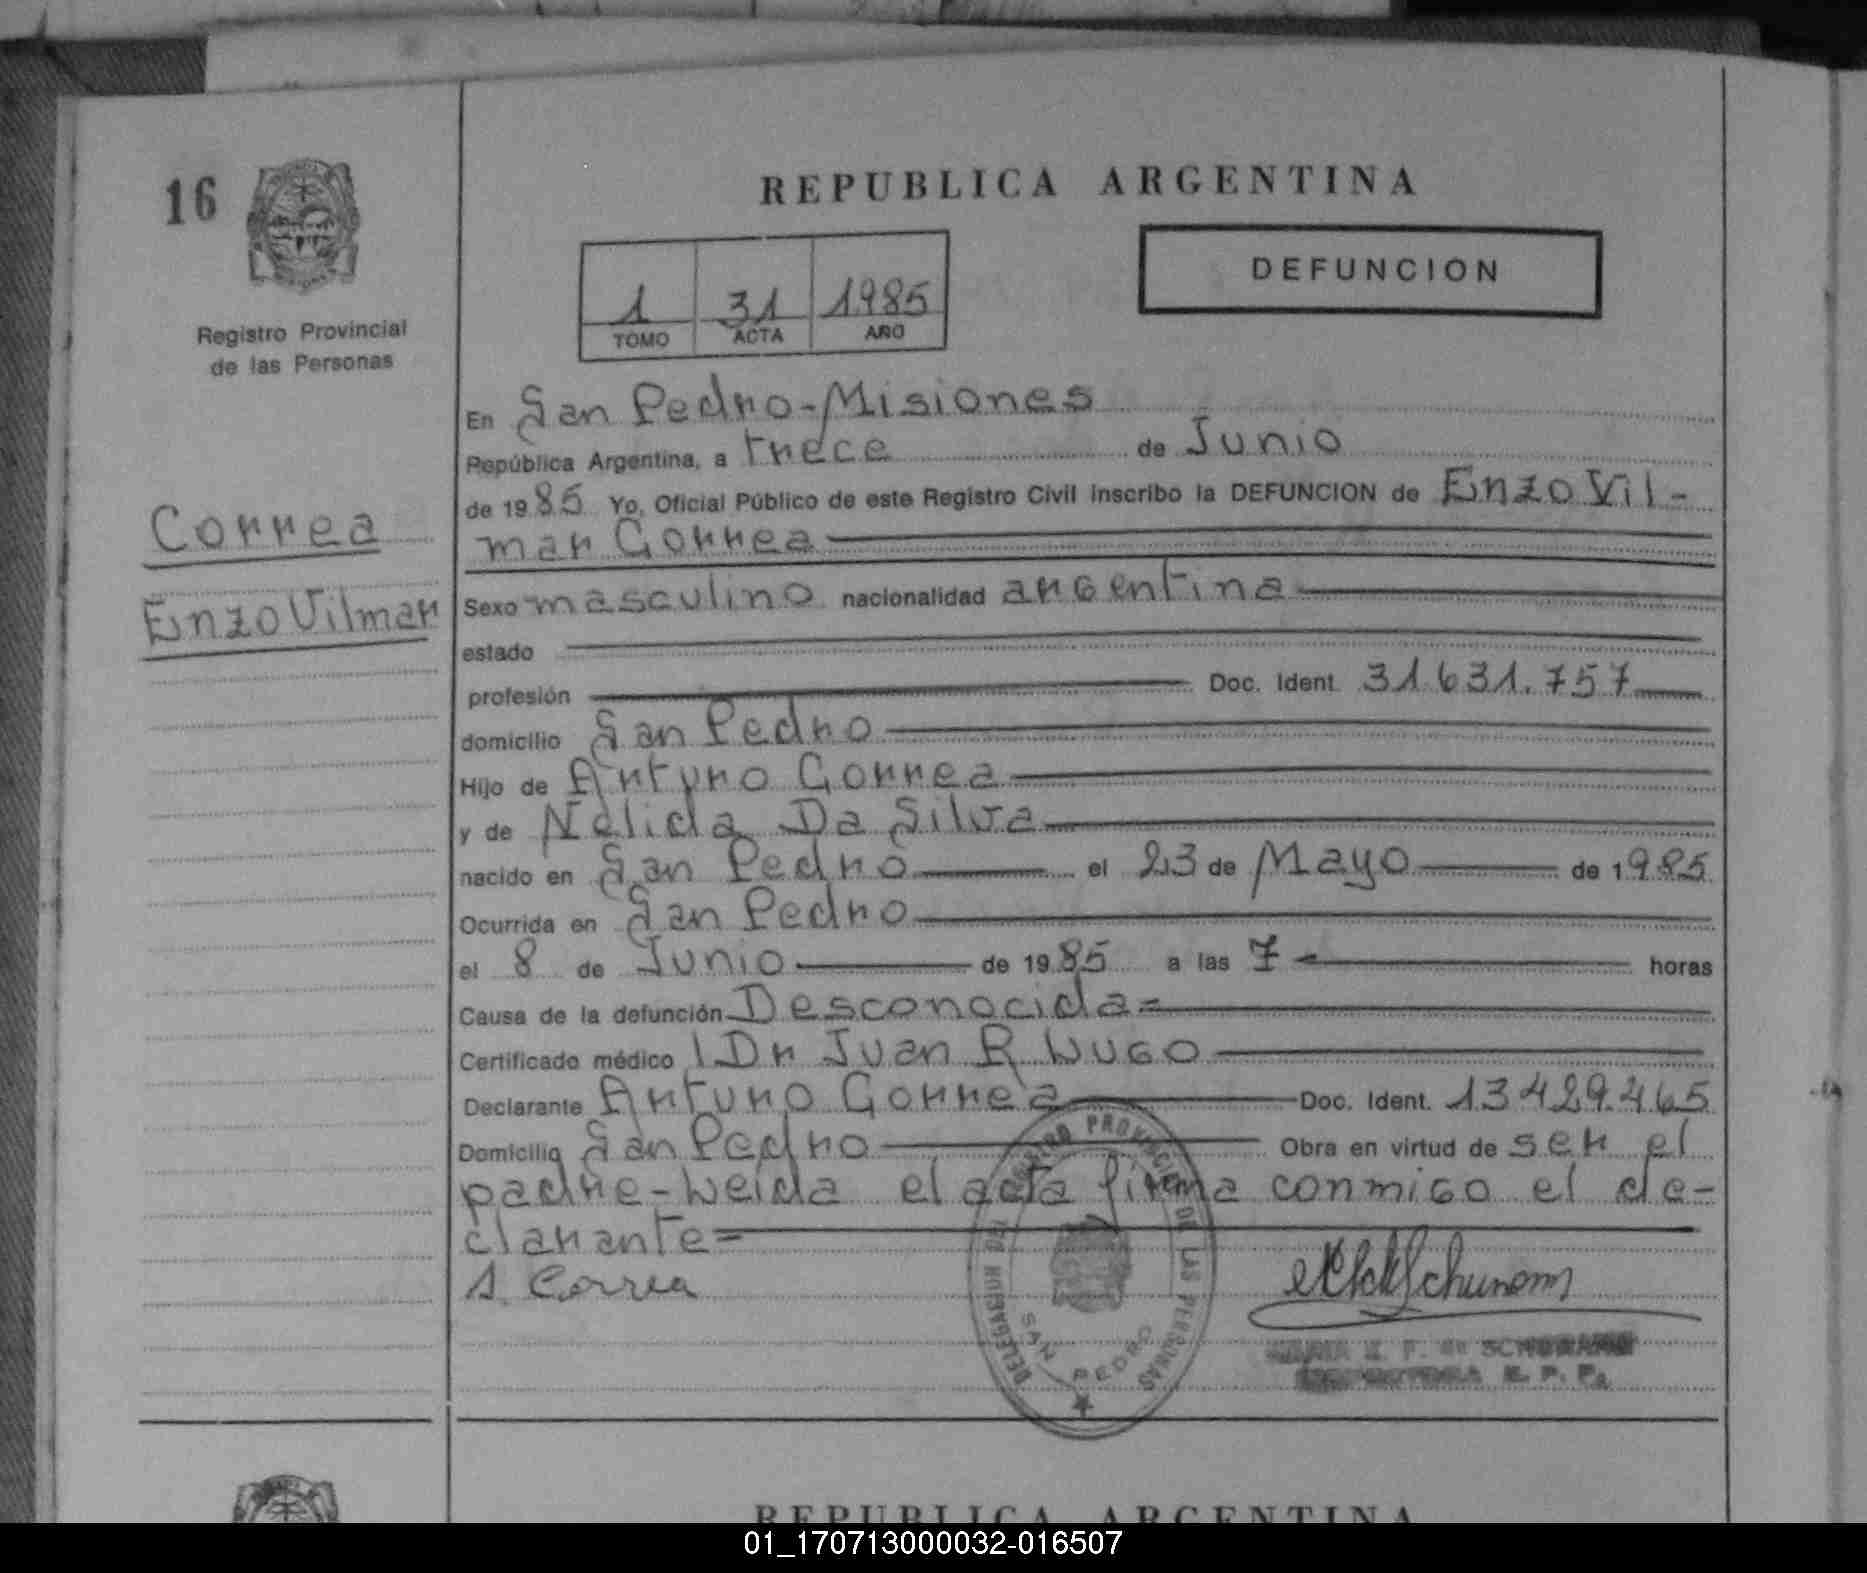 16
Registro Provincial
de las Personas
Correa
Enzo Vilmar
REPUBLICA ARGENTINA
DEFUNCION
1 31 1985
TOMO ACTA AÑO
En San Pedro-Misiones
República Argentina, a trece de Junio
de 1985 Yo, Oficial Público de este Registro Civil inscribo la DEFUNCION de Enzo Vil-
mar Correa
Sexo masculino nacionalidad argentina
estado
profesión Doc. Ident. 31.631.757
domicilio San Pedro
Hijo de Arturo Correa
y de Nelida Da Silva
nacido en San Pedro el 23 de Mayo de 1985
Ocurrida en San Pedro
el 8 de Junio de 1985 a las 7 horas
Causa de la defunción Desconocida=
Certificado médico Dr Juan R
Declarante Arturo Correa Doc. Ident. 13429.465
Domicilio San Pedro Obra en virtud de ser el
padre-Leida el acta firma conmigo el de-
clarante=
A. Correa
DELEGACION REGISTRO PROVINCIAL DE LAS PERSONAS
SAN PEDRO
REPUBLICA ARGENTINA
01_170713000032-016507